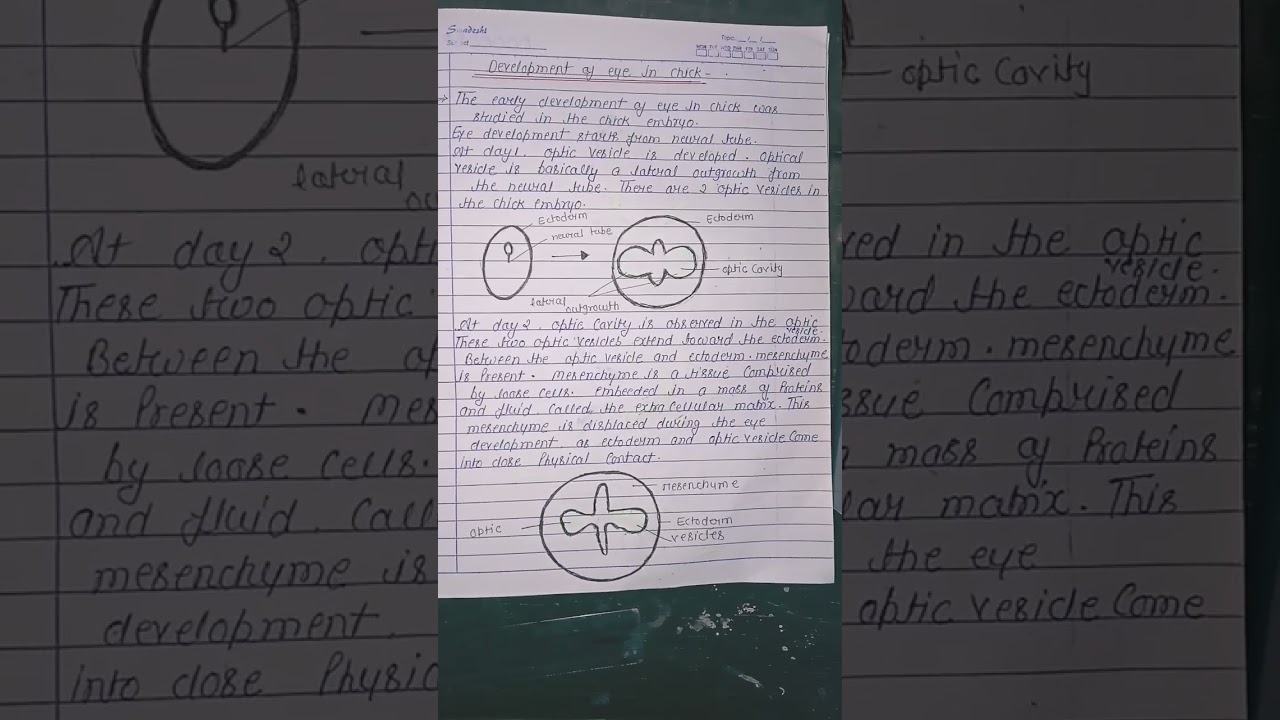 Topic __/__/__
MON TUE WED THU FRI SAT SUN
Development of eye in chick -
→ The early development of eye in chick was
studied in the chick embryo.
Eye development starts from neural tube.
At day 1. optic vesicle is developed. optical
vesicle is basically a lateral outgrowth from
the neural tube. There are 2 optic vesicles in
the chick embryo.
Ectoderm
neural tube
Ectoderm
optic Cavity
lateral
outgrowth
At day 2. optic Cavity is observed in the optic
vesicle.
These two optic vesicles extend toward the ectoderm.
Between the optic vesicle and ectoderm. mesenchyme
is Present. Mesenchyme is a tissue Comprised
by loose cells. embeeded in a mass of Proteins
and fluid. Called the extra Cellular matrix. This
mesenchyme is displaced during the eye
development. as ectoderm and optic vesicle Come
into close Physical Contact.
mesenchyme
optic
Ectoderm
vesicles
lateral
At day 2. opt
These two optic
Between the op
is Present. Mes
by loose cells.
and fluid. Call
mesenchyme is
development.
into close Physic
optic Cavity
ved in the optic
vesicle.
ward the ectoderm.
oderm. mesenchyme
ssue Comprised
mass of Proteins
lar matrix. This
the eye
optic vesicle Come